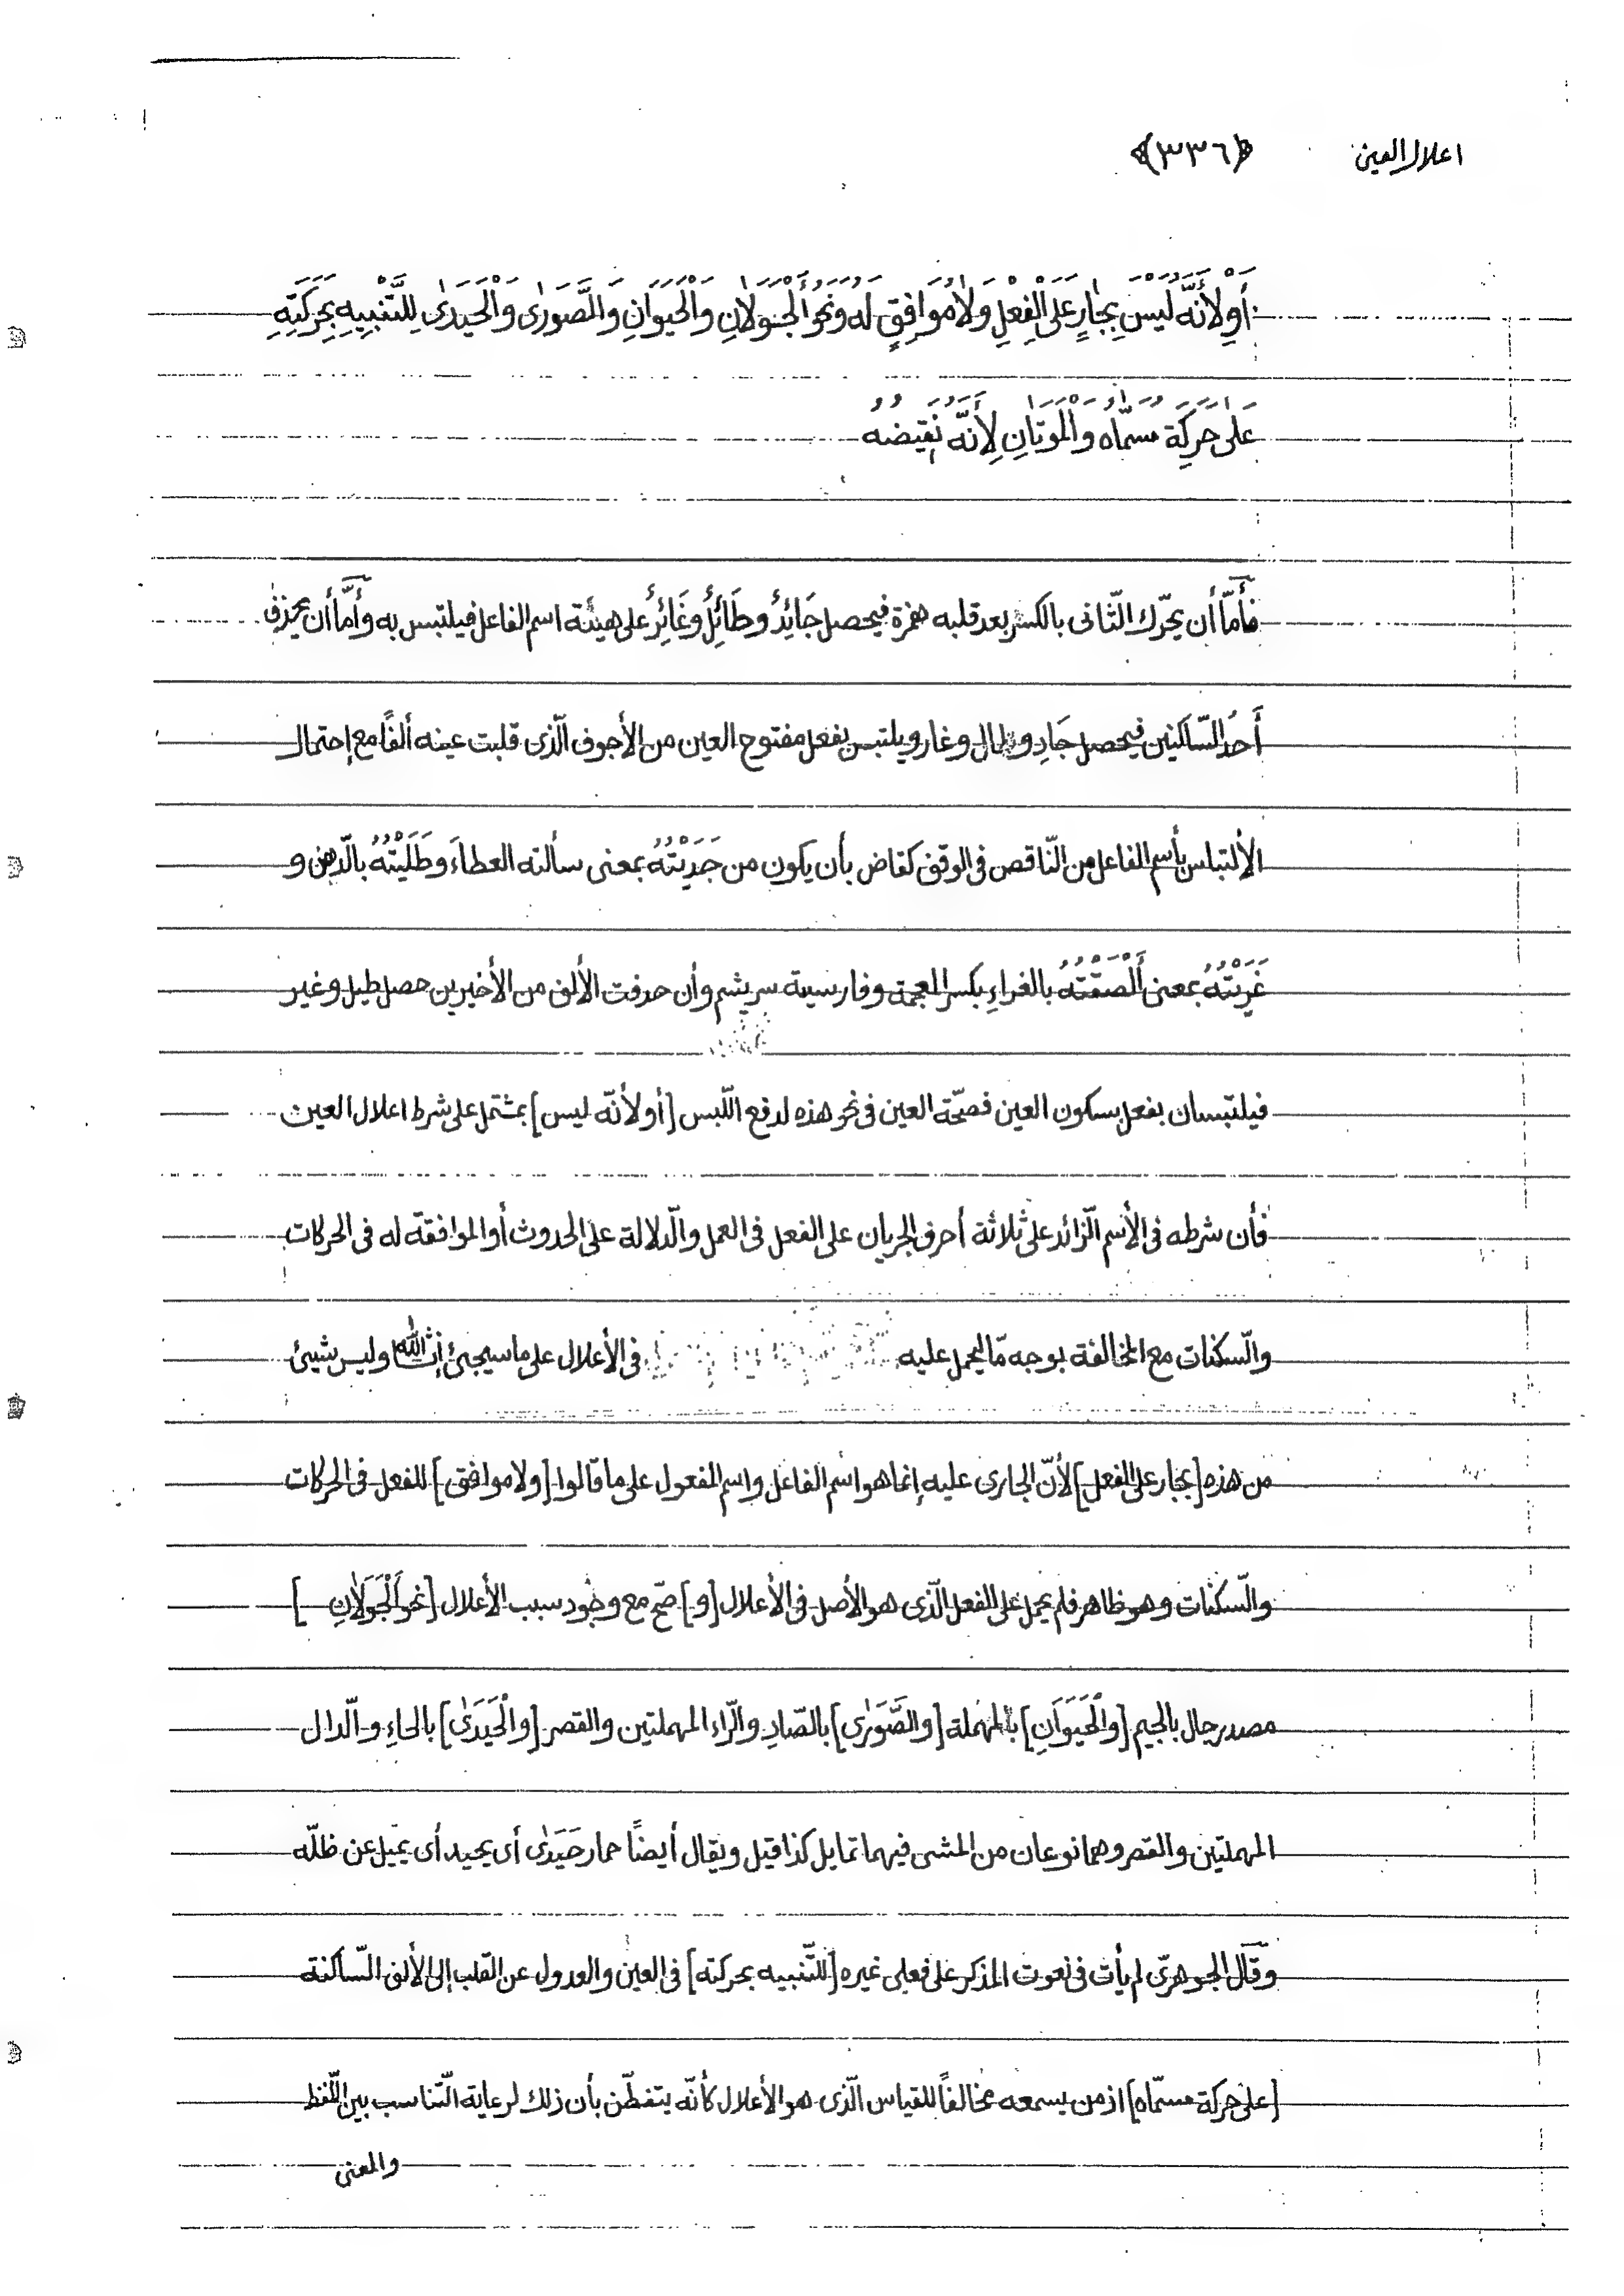 اعلال العين ﴿٣٣٦﴾
أَوْ لِأَنَّهُ لَيْسَ بِجٰارٍ عَلَى الْفِعْلِ وَلٰا مُوَافِقٍ لَهُ وَنَحْوُ الْجَوَلٰانِ وَالْحَيَوَانِ وَالصَّوَرٰى وَالْحَيَدٰى لِلتَّنْبِيهِ بِحَرَكَتِهِ
عَلٰى حَرَكَةِ مُسَمّٰاهُ وَالْمَوَتٰانِ لِأَنَّهُ نَقِيضُهُ
فأمّا أن يحرّك الثّانى بالكسر بعد قلبه همزة فيحصل جَائِدٌ وطَائِلٌ وغَائِرٌ على هيئة اسم الفاعل فيلتبس به وأمّا أن يحذف
أحدُ السّاكنين فيحصل جَادِ وطال وغار ويلتبس بفعل مفتوح العين من الأجوف الّذى قلبت عينه ألفًا مع إحتمال
الألتباس بأسم الفاعل من النّاقص فى الوقف كقاض بأن يكون من جَدَيْتُهُ بمعنى سألته العطاءَ وطَلَيْتُهُ بالدّهن و
غَرَيْتُهُ بمعنى أَلْصَقْتُهُ بالغراءِ بكسر المعجمة وفارسيته سريشم وأن حذفت الألف من الأخيرين حصل طيل وغير
فيلتبسان بفعل بسكون العين فصحّة العين فى نحو هذه لدفع اللّبس [أو لأنّه ليس] بمشتمل على شرط اعلال العين
فأن شرطه فى الأسم الزّائد على ثلاثة أحرف الجريان على الفعل فى العمل والدّلالة على الحدوث أو الموافقة له فى الحركات
والسّكنات مع المخالفة بوجه مّا ليحمل عليه فى الأعلال على ما سيجئ إنشاالله وليس شيئ
من هذه [بجار على الفعل] لأنّ الجارى عليه إنما هو اسم الفاعل واسم المفعول على ما قالوا [ولا موافق] للفعل فى الحركات
والسّكنات وهو ظاهر فلم يحمل على الفعل الّذى هو الأصل فى الأعلال [و] صّح مع وجود سبب الأعلال [نحو اَلْجَوَلٰانِ ]
مصدر جال بالجيم [والْحَيَوَانِ] بالمهملة [والصَّوَرٰى] بالصّادِ والرّاء المهملتين والقصر [والْحَيَدٰى] بالحاءِ والدّال
المهملتين والقصر وهما نوعان من المشى فيهما تمايل كذا قيل ويقال أيضًا حمار حَيَدٰى أى يحيد أى يميل عن ظلّه
وقال الجوهرىّ لم يأت فى نعوت المذكر على فعلى غيره [للتّنبيه بحركته] فى العين والعدول عن القلب إلى الألف السّاكنة
[على حركة مسمّاه] اذ من يسمعه مخالفًا للقياس الّذى هو الأعلال كأنّه يتفطّن بأن ذلك لرعاية التّناسب بين اللّفظ
والمعنى